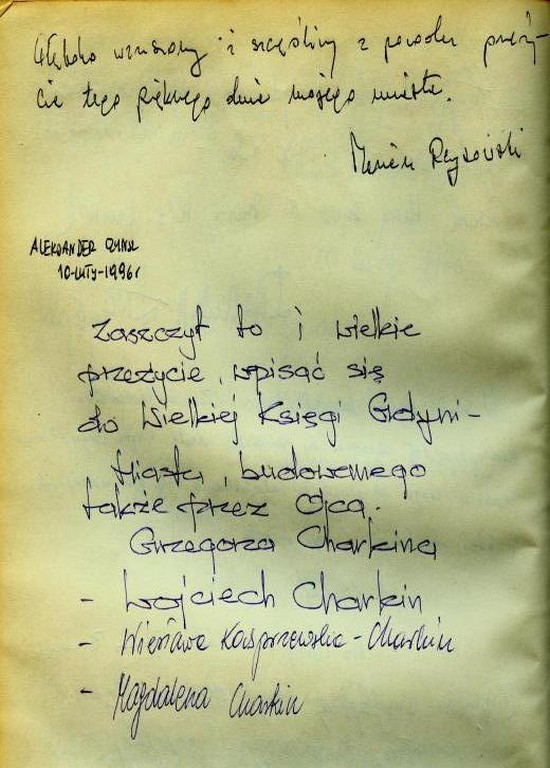 Głęboko wzruszony i szczęśliwy z powodu przeży-
cia tego pięknego dnia mojego miasta.
Marian
ALEKSANDER
10-LUTY-1996r
Zaszczyt to i wielkie
przeżycie, wpisać się
do Wielkiej Księgi Gdyni-
Miasta, budowanego
także przez Ojca.
Grzegorza Charkina
- Wojciech Charkin
- Wiesława Kasprzewska-Charkin
- Magdalena Charkin